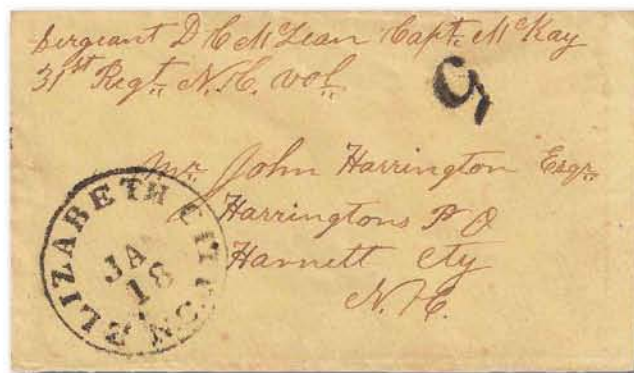 Sergeant D C McLean Capt. McKay
31st Regt. N.C. vol.
5
Mr. John Harrington Esqr.
Harringtons P O
Harnett Cty
N.C.
ELIZABETH CITY N.C.
JA
18